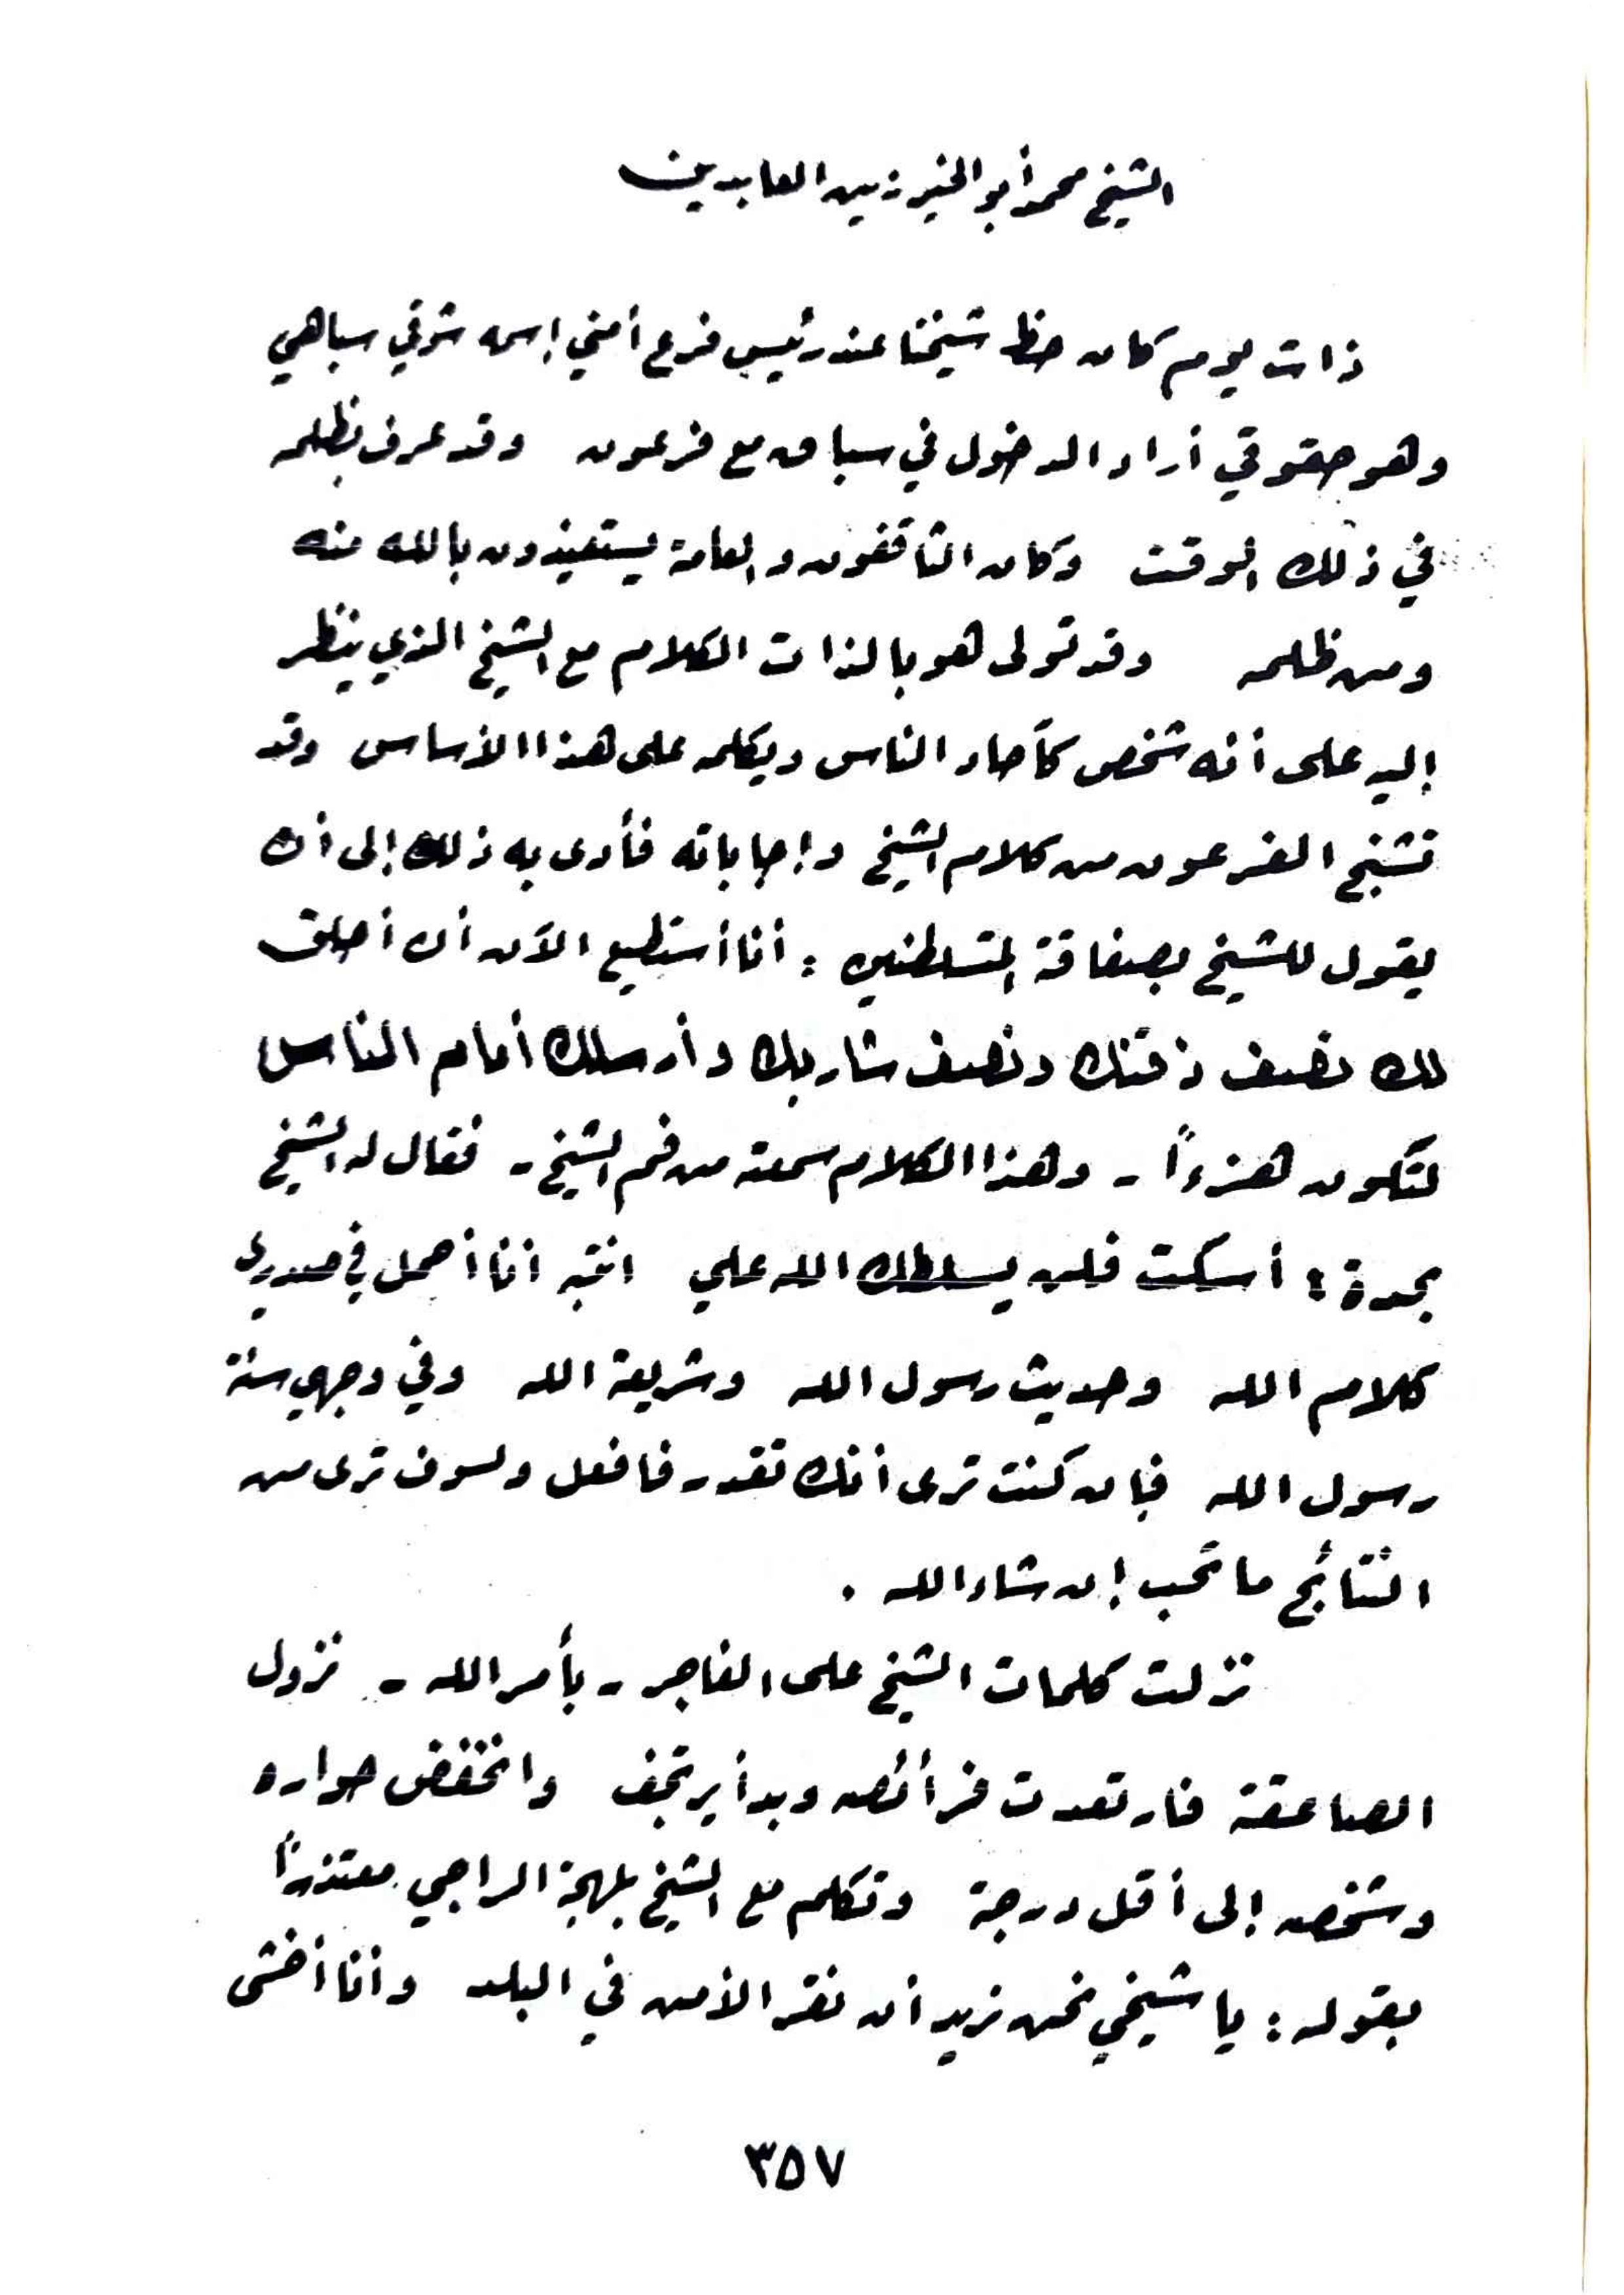 الشيخ محمد أبو الخير زين العابدين
ذات يوم كان حظ شيخنا عند رئيس فرع أمني إسمه شوقي سباهي
وهو حقوقي أراد الدخول في سباق مع فرعون وقد عرف بظلمه
في ذلك الوقت وكان الثاقفون والعامة يستعيذون بالله منه
ومن ظلمه وقد تولى هو بالذات الكلام مع الشيخ الذي ينظر
إليه على أنه شخص كآحاد الناس ويكلمه على هذا الأساس وقد
تشنج الفرعون من كلام الشيخ وإجاباته فأدى به ذلك إلى أن
يقول للشيخ بصفاقة المتسلطنين : أنا أستطيع الآن أن أحلق
لك نصف ذقنك ونصف شاربك وأرسلك أمام الناس
لتكون هزءاً - وهذا الكلام سمعته من فم الشيخ - فقال له الشيخ
بحدة : أسكت فلن يسلطك الله علي انتبه أنا أحمل في صدري
كلام الله وحديث رسول الله وشريعة الله وفي وجهي سنة
رسول الله فإن كنت ترى أنك تقدر فافعل ولسوف ترى من
النتائج ما تحب إن شاء الله .
نزلت كلمات الشيخ على الفاجر - بأمر الله - نزول
الصاعقة فارتعدت فرائصه وبدأ يرتجف وانخفض حواره
وشخصه إلى أقل درجة وتكلم مع الشيخ بلهجة الراجي معتذراً
بقوله : يا شيخي نحن نريد أن نقر الأمن في البلد وأنا أخشى
٣٥٧